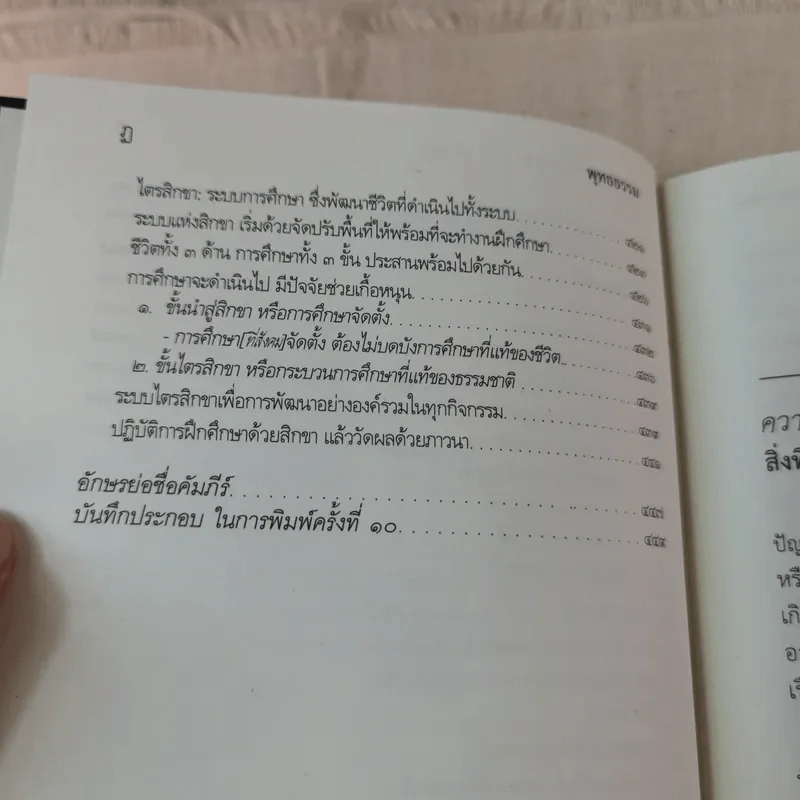 ฎ
พุทธธรรม
ไตรสิกขา: ระบบการศึกษา ซึ่งพัฒนาชีวิตที่ดำเนินไปทั้งระบบ. . . . . . . . . . . . . . ๔๒๑
ระบบแห่งสิกขา เริ่มด้วยจัดปรับพื้นที่ให้พร้อมที่จะทำงานฝึกศึกษา. . . . . . . . . . . ๔๒๓
ชีวิตทั้ง ๓ ด้าน การศึกษาทั้ง ๓ ขั้น ประสานพร้อมไปด้วยกัน. . . . . . . . . . . . . . ๔๒๖
การศึกษาจะดำเนินไป มีปัจจัยช่วยเกื้อหนุน. . . . . . . . . . . . . . . . . . . . . . . ๔๓๑
๑. ขั้นนำสู่สิกขา หรือการศึกษาจัดตั้ง. . . . . . . . . . . . . . . . . . . . . . . . ๔๓๒
- การศึกษา[ที่สังคม]จัดตั้ง ต้องไม่บดบังการศึกษาที่แท้ของชีวิต. . . . . . . . . ๔๓๖
๒. ขั้นไตรสิกขา หรือกระบวนการศึกษาที่แท้ของธรรมชาติ . . . . . . . . . . . . . ๔๓๘
ระบบไตรสิกขาเพื่อการพัฒนาอย่างองค์รวมในทุกกิจกรรม. . . . . . . . . . . . . . . ๔๓๙
ปฏิบัติการฝึกศึกษาด้วยสิกขา แล้ววัดผลด้วยภาวนา. . . . . . . . . . . . . . . . . . ๔๔๑
อักษรย่อชื่อคัมภีร์. . . . . . . . . . . . . . . . . . . . . . . . . . . . . . . . . . . ๔๔๗
บันทึกประกอบ ในการพิมพ์ครั้งที่ ๑๐. . . . . . . . . . . . . . . . . . . . . . . . . ๔๔๙